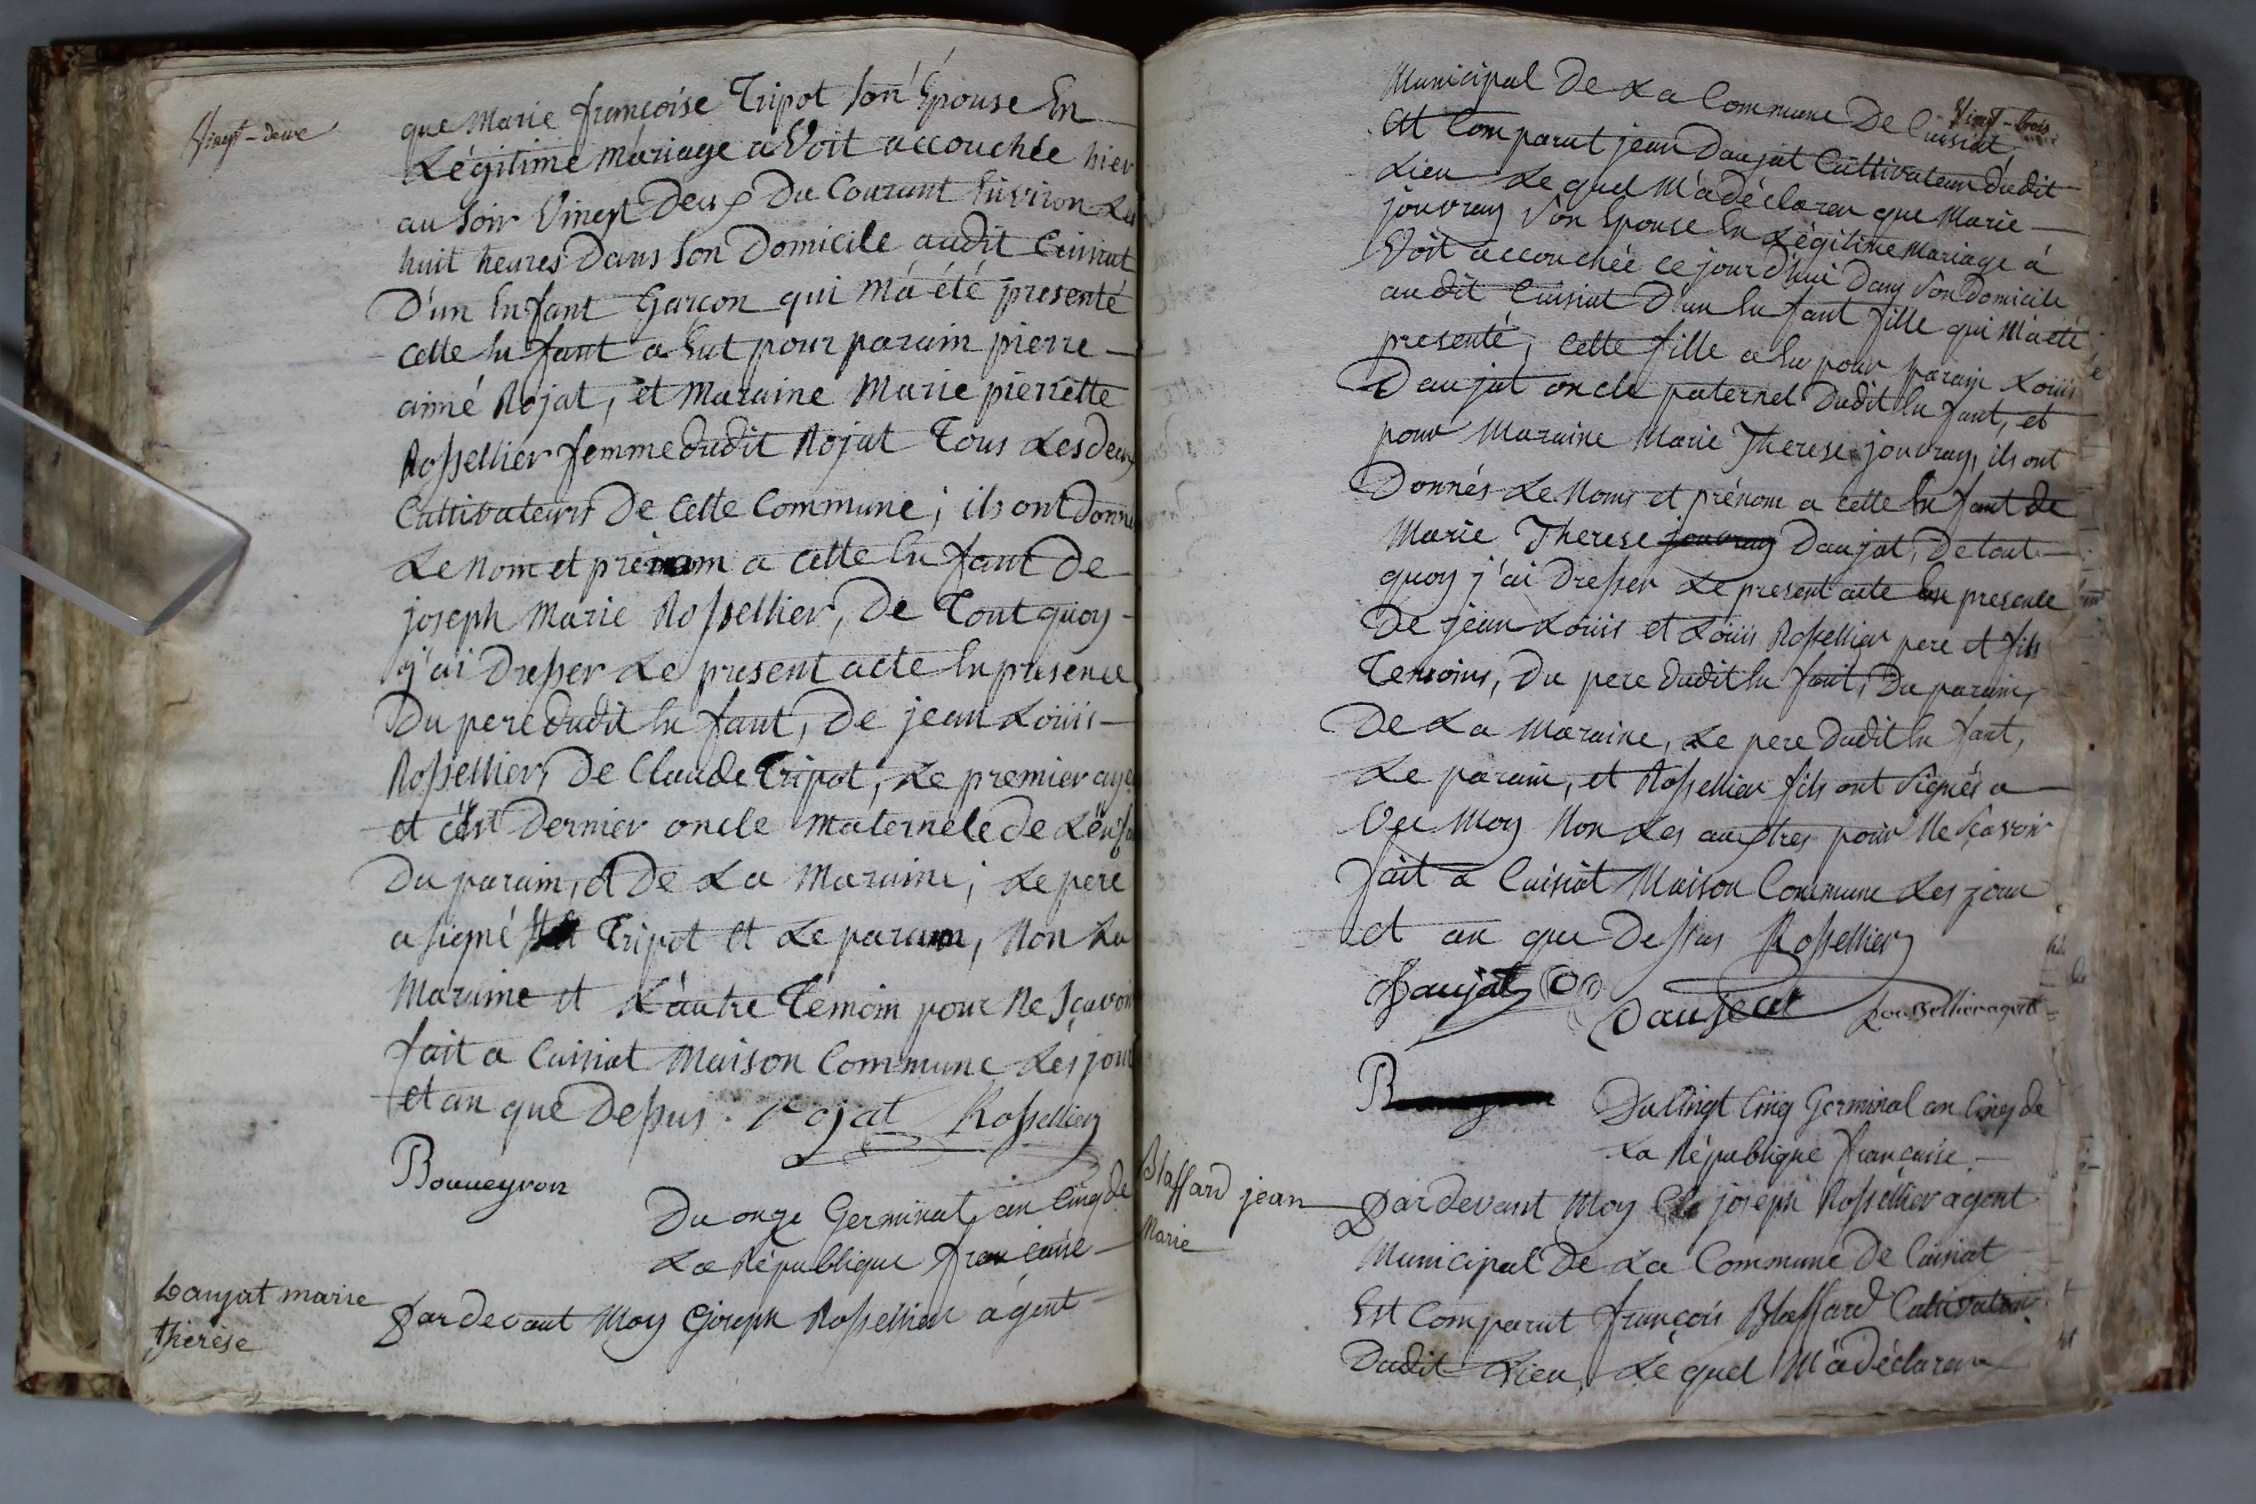 Vingt-deux
que Marie françoise Tripot son Épouse En
Légitime mariage a Voit accouchée hier
au soir Vingt Deux Du Courant Environ Les
huit heures Dans son Domicile audit Cuisiat
D'un Enfant Garçon qui M'a été presenté
Cette Enfant a Eut pour parain pierre
aimé Rojat, et Maraine Marie pierrette
Rossellier femme dudit Rojat Tous Les deux
Cultivateurs De Cette Commune; ils ont donné
Le Nom et prénom a Cette Enfant De
joseph Marie Rossellier, De Tout quoy
j'ai Dresser Le present acte En presence
Du pere dudit Enfant, De jean Loüis
Rossellier, De Claude Tripot, Le premier aye
et Dernier oncle Maternele de
Du parain, et De La Maraine; Le pere
a signé Tripot et Le parain, Non La
Maraine et L'autre Témoin pour Ne Sçavoir
fait a Cuisiat Maison Commune Les jour
et an que Dessus. Rojat Rossellier
Bouveyron
Du onze Germinal an Cinq de
La République françoise
Daujat marie
therèse
Pardevant Moy Joseph Rossellier agent
Vingt-trois
Municipal De La Commune De Cuisiat
Est Comparut jean Daujat Cultivateur dudit
Lieu Le quel M'a déclarer que Marie
jouvray Son Epouse En Légitime Mariage a
Voit accouchée ce jourd'hui Dans Son Domicile
audit Cuisiat D'un Enfant fille qui M'a été
presenté, Cette fille a Eu pour parain Loüis
Daujat oncle paternel Dudit Enfant, et
pour Maraine Marie Therese jouvray, ils ont
Donnés Le Noms et prénom a Cette Enfant de
Marie Therese jouvray Daujat, De tout
quoy j'ai Dresser Le present acte En presence
De jean Loüis et Loüis Rossellier pere et fils
Temoins, Du pere Dudit Enfant, Du parain,
De La Maraine, Le pere Dudit Enfant,
Le parain, et Rossellier fils ont Signés a
Vec Moy Non Les autres pour Ne Sçavoir
fait a Cuisiat Maison Commune Les jour
et an que Dessus Rossellier
Daujat Daujeat Rossellier agent
Du Vingt Cinq Germinal an Cinq de
La République françoise
Blaffard jean
Marie
Pardevant Moy joseph Rossellier agent
Municipal De La Commune De Cuisiat
Est Comparut françois Blaffard Cultivateur
Dudit Lieu, Le quel M'a déclarer